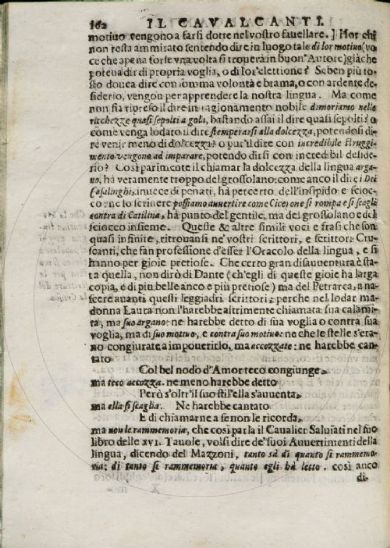 162 IL CAVALCANTI.
motiuo vengono a farsi dotte nel vostro fauellare.] Hor chi
non resta ammirato sentendo dire in luogo tale di lor motiuo (vo
ce che apena forse vna volta si trouerà in buon'Autore) già che
poteua dir di propria voglia, o di lor'elettione? Se ben più to-
sto douea dire con somma volontà e brama, o con ardente de-
siderio, vengon per apprendere la nostra lingua. Ma come
non sia ripreso il dire in ragionamento nobile dimoriamo nelle
ricchezze quasi sepolti a gola, bastando assai il dire quasi sepolti? o
come venga lodato il dire stemperarsi alla dolcezza, potendosi di-
re venir meno di dolcezza? o pur'il dire con incredibile struggi-
mento vengono ad imparare, potendo dirsi con incredibil deside-
rio? Così parimente il chiamar la dolcezza della lingua argu-
no, hà veramente troppo del grossolano: come anco il dire i Dei
Casalinghi, inuece di penati, hà per certo dell'insipido e scioc-
co: ne lo scriuere possiamo auuertire come Cicerone si rompa e si scagli
contra di Catilina, hà punto del gentile, ma del grossolano e del
sciocco insieme. Queste & altre simili voci e frasi che son
quasi infinite, ritrouansi ne' vostri scrittori, e scrittor: Cru-
scanti, che fan professione d'esser l'Oracolo della lingua, e si
hanno per gioie pretiose. Che certo gran disauentura è sta
ta quella, non dirò di Dante (ch'egli di queste gioie ha larga
copia, e di più belle anco e più pretiose) ma del Petrarca, a na-
scere auanti questi leggiadri scrittori; perche nel lodar ma-
donna Laura non l'harebbe altrimente chiamata sua calami-
ta, ma suo argano: ne harebbe detto di sua voglia o contra sua
voglia, ma di suo motuo, e contra suo motiuo: ne che le stelle s'era-
no congiurate a impouerirlo, ma accozzate: ne harebbe can-
tato
Col bel nodo d'Amor teco congiunge
ma teco accozza. ne meno harebbe detto
Però s'oltr'il suo stil'ella s'auuenta
ma ella si scaglia. Ne harebbe cantato
E di chiamarne a se non le ricorda,
ma non le rammemoria, che così parla il Cavalier Saluiati nel suo
libro delle XVI. Tauole, volsi dire de' suoi Auuertimenti della
lingua, dicendo del Mazzoni, tanto sà di quanto si rammemo-
ria; di tanto si rammemoria, quanto egli hà letto. così anco
di-